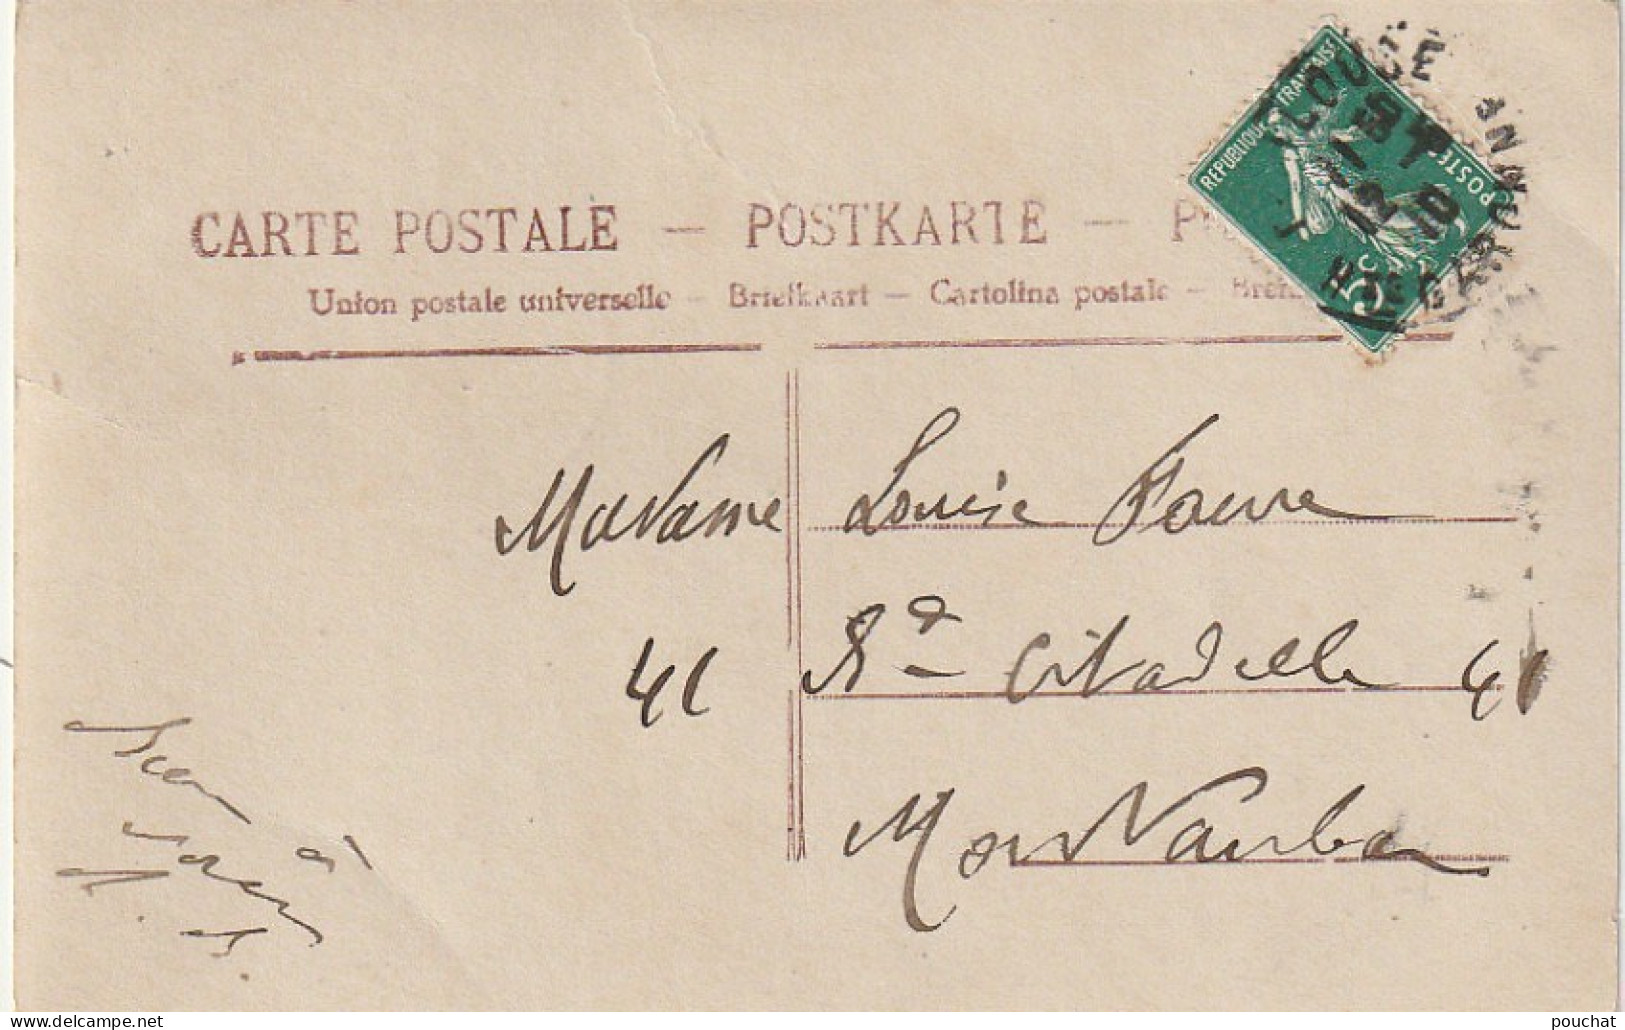 CARTE POSTALE — POSTKARTE — P
Union postale universelle — Briefkaart — Cartolina postale —
REPUBLIQUE FRANÇAISE
POSTES
5c
Madame Louise Faure
41 Rd Citadelle 41
Montauban
à
delcampe.net
pouchat